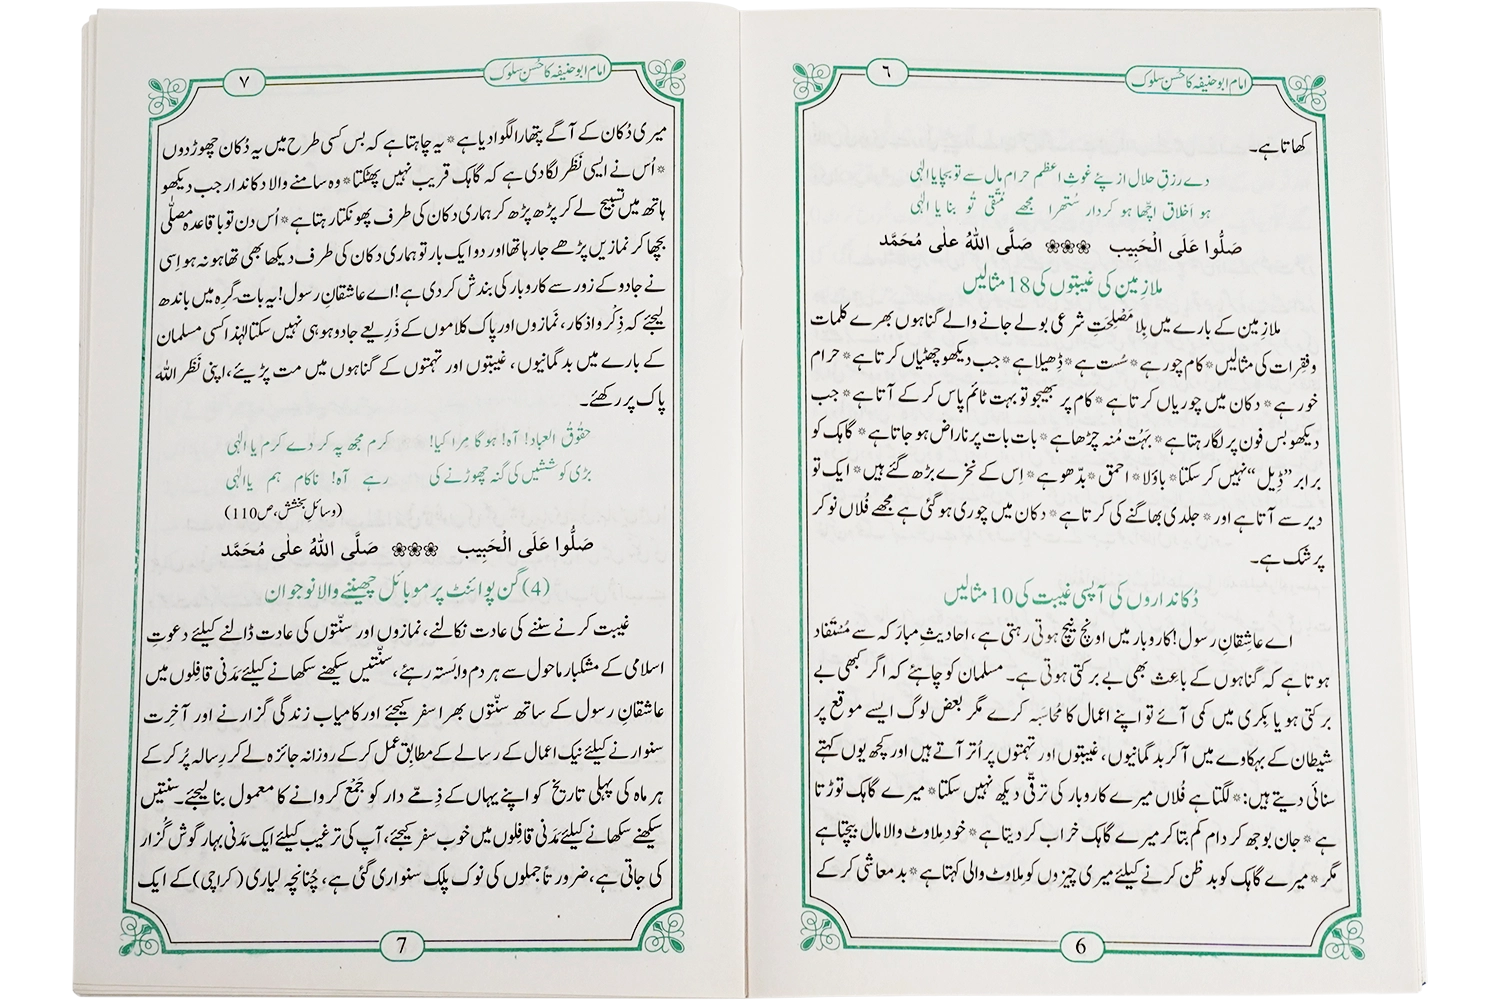 امام ابو حنیفہ کا حُسنِ سلوک
٦
کھاتا ہے۔
دے رزقِ حلال از پئے غوثِ اعظم حرام مال سے تو بچا یا الٰہی
ہو اَخلاق اچّھا ہو کردار سُتھرا مجھے مُتَّقی تُو بنا یا الٰہی
صَلُّوا عَلَى الْحَبِيب ❀❀❀ صَلَّى اللهُ عَلٰى مُحَمَّد
ملازِمین کی غیبتوں کی 18 مثالیں
ملازِمین کے بارے میں بِلا مَصْلَحَتِ شرعی بولے جانے والے گناہوں بھرے کلمات
وفِقرات کی مثالیں * کام چور ہے * سُست ہے * ڈِھیلا ہے * جب دیکھو چھٹیاں کرتا ہے * حرام
خور ہے * دکان میں چوریاں کرتا ہے * کام پر بھیجو تو بہت ٹائم پاس کر کے آتا ہے * جب
دیکھو بس فون پر لگا رہتا ہے * بَہُت مُنہ چڑھا ہے * بات بات پر ناراض ہو جاتا ہے * گاہک کو
برابر ”ڈِیل“ نہیں کر سکتا * باؤلا * احمق * بدّھو ہے * اِس کے نخرے بڑھ گئے ہیں * ایک تو
دیر سے آتا ہے اور * جلدی بھاگنے کی کرتا ہے * دکان میں چوری ہو گئی ہے مجھے فُلاں نوکر
پر شک ہے۔
دُکانداروں کی آپسی غیبت کی 10 مثالیں
اے عاشقانِ رسول! کاروبار میں اونچ نیچ ہوتی رہتی ہے، احادیثِ مبارَکہ سے مُسْتَفاد
ہوتا ہے کہ گناہوں کے باعث بھی بے برکتی ہوتی ہے۔ مسلمان کو چاہئے کہ اگر کبھی بے
برکتی ہو یا بِکری میں کمی آئے تو اپنے اعمال کا مُحاسَبہ کرے مگر بعض لوگ ایسے موقع پر
شیطان کے بہکاوے میں آ کر بدگمانیوں، غیبتوں اور تہمتوں پر اُتر آتے ہیں اور کچھ یوں کہتے
سنائی دیتے ہیں: * لگتا ہے فُلاں میرے کاروبار کی ترقّی دیکھ نہیں سکتا * میرے گاہک توڑتا
ہے * جان بوجھ کر دام کم بتا کر میرے گاہک خراب کر دیتا ہے * خود ملاوٹ والا مال بیچتا ہے
مگر * میرے گاہک کو بدظن کرنے کیلئے میری چیزوں کو ملاوٹ والی کہتا ہے * بدمعاشی کر کے
6
امام ابو حنیفہ کا حُسنِ سلوک
٧
میری دُکان کے آگے پتھارا لگوا دیا ہے * یہ چاہتا ہے کہ بس کسی طرح میں یہ دُکان چھوڑ دوں
* اُس نے ایسی نَظَر لگا دی ہے کہ گاہک قریب نہیں پھٹکتا * وہ سامنے والا دکاندار جب دیکھو
ہاتھ میں تسبیح لے کر پڑھ پڑھ کر ہماری دکان کی طرف پھونکتا رہتا ہے * اُس دن تو باقاعدہ مصلّٰی
بچھا کر نمازیں پڑھے جا رہا تھا اور دو ایک بار تو ہماری دکان کی طرف دیکھا بھی تھا ہو نہ ہو اِسی
نے جادو کے زور سے کاروبار کی بندش کر دی ہے! اے عاشقانِ رسول! یہ بات گِرہ میں باندھ
لیجئے کہ ذِکْر و اذکار، نَمازوں اور پاک کلاموں کے ذَرِیعے جادو ہو ہی نہیں سکتا لہٰذا کسی مسلمان
کے بارے میں بدگمانیوں، غیبتوں اور تہمتوں کے گناہوں میں مت پڑیئے، اپنی نَظَر اللہ
پاک پر رکھئے۔
حقُوقُ العباد! آہ! ہوگا مِرا کیا! کرم مجھ پہ کر دے کرم یا الٰہی
بڑی کوششیں کی گنہ چھوڑنے کی رہے آہ! ناکام ہم یا الٰہی
(وسائلِ بخشش، ص110)
صَلُّوا عَلَى الْحَبِيب ❀❀❀ صَلَّى اللهُ عَلٰى مُحَمَّد
(4) گن پوائنٹ پر موبائل چھیننے والا نوجوان
غیبت کرنے سننے کی عادت نکالنے، نمازوں اور سنّتوں کی عادت ڈالنے کیلئے دعوتِ
اسلامی کے مشکبار ماحول سے ہر دم وابَستہ رہئے، سنّتیں سیکھنے سکھانے کیلئے مَدَنی قافلوں میں
عاشقانِ رسول کے ساتھ سنّتوں بھرا سفر کیجئے اور کامیاب زندگی گزارنے اور آخِرت
سنوارنے کیلئے نیک اعمال کے رسالے کے مطابِق عمل کر کے روزانہ جائزہ لے کر رِسالہ پُر کر کے
ہر ماہ کی پہلی تاریخ کو اپنے یہاں کے ذِمّے دار کو جَمْع کروانے کا معمول بنا لیجئے۔ سنتیں
سیکھنے سکھانے کیلئے مَدَنی قافِلوں میں خوب سفر کیجئے، آپ کی ترغیب کیلئے ایک مَدَنی بہار گوش گُزار
کی جاتی ہے، ضرورتاً جملوں کی نوک پلک سنواری گئی ہے، چُنانچِہ لیاری (کراچی) کے ایک
7